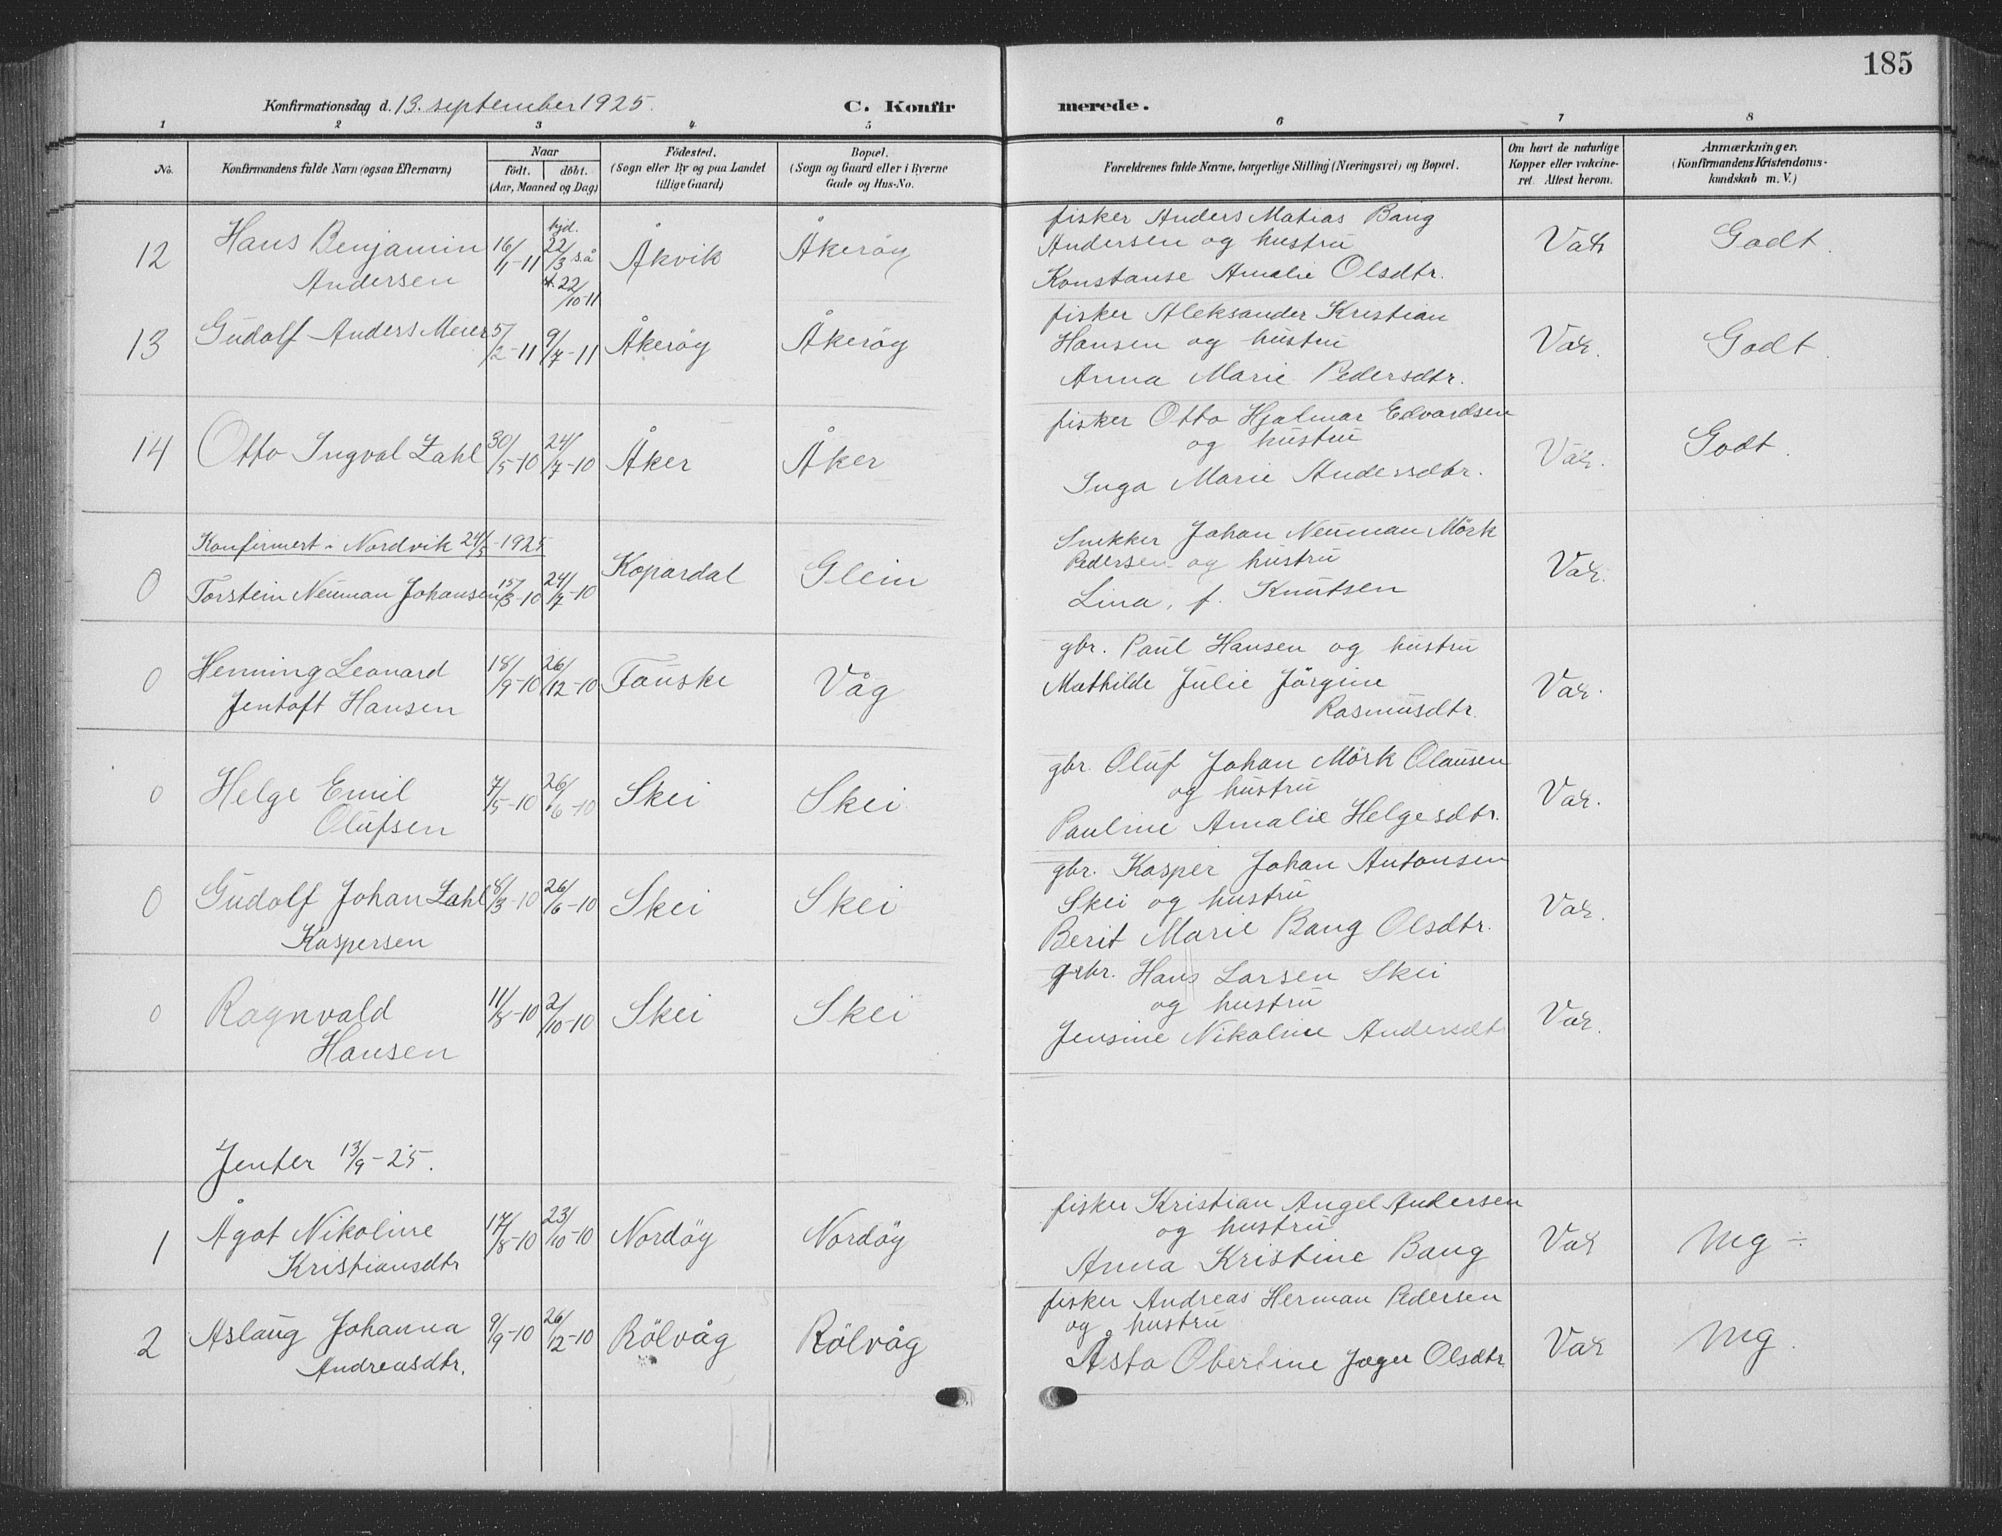 185
Konfirmationsdag d. 13. september 1925. C. Konfirmerede.
1 2 3 4 5 6 7 8
No. Konfirmandens fulde Navn (ogsaa Efternavn) Naar födt. döbt. (Aar, Maaned og Dag) Födested. (Sogn eller By og paa Landet tillige Gaard) Bopæl. (Sogn og Gaard eller i Byerne Gade og Hus-No. Forældrenes fulde Navne, borgerlige Stilling (Næringsvei) og Bopæl. Om havt de naturlige Kopper eller vakcineret. Attest herom. Anmærkninger. (Konfirmandens Kristendomskundskab m. V.)
12 Hans Benjamin Andersen 16/1-11 hjd. 22/3 s.å. 22/10-11 Åkvik Åkerøy
fisker Anders Matias Bang
Andersen og hustru
Konstanse Amalie Olsdtr.
Vak Godt.
13 Gudolf Anders Meier 5/2-11 9/7-11 Åkerøy Åkerøy
fisker Aleksander Kristian
Hansen og hustru
Anna Marie Pedersdtr.
Vak. Godt.
14 Otto Ingval Zahl 30/5-10 24/7-10 Åker Åker
fisker Otto Hjalmar Edvardsen
og hustru
Inga Marie Andersdtr.
Vak. Godt.
Konfirmert i Nordvik 24/5-1925
0 Torstein Neuman Johansen 15/3-10 24/7-10 Kopardal Glein
Snekker Johan Neuman Mörk
Pedersen og hustru
Lina, f. Knutsen
Vak.
0 Henning Leonard Jentoft Hansen 18/9-10 26/12-10 Fauske Våg
gbr. Paul Hansen og hustru
Mathilde Julie Jörgine
Rasmusdtr.
Vak.
0 Helge Emil Olufsen 7/5-10 26/6-10 Skei Skei
gbr. Oluf Johan Mörk Olausen
og hustru
Pauline Amalie Helgesdtr.
Vak.
0 Gudolf Johan Zahl Kaspersen 8/3-10 26/6-10 Skei Skei
gbr. Kasper Johan Antonsen
Skei og hustru
Berit Marie Bang Olsdtr.
Vak.
0 Ragnvald Hansen 11/8-10 2/10-10 Skei Skei
gbr. Hans Larsen Skei
og hustru
Jensine Nikoline Andersdt
Vak.
Jenter 13/9-25.
1 Ågot Nikoline Kristiansdtr 17/8-10 23/10-10 Nordöy Nordöy
fisker Kristian Angel Andersen
og hustru
Anna Kristine Bang
Vak Mg ÷
2 Aslaug Johanna Andreasdtr. 9/9-10 26/12-10 Rölvåg Rölvåg
fisker Andreas Herman Pedersen
og hustru
Åsta Obertine Jæger Olsdtr
Vak Mg.